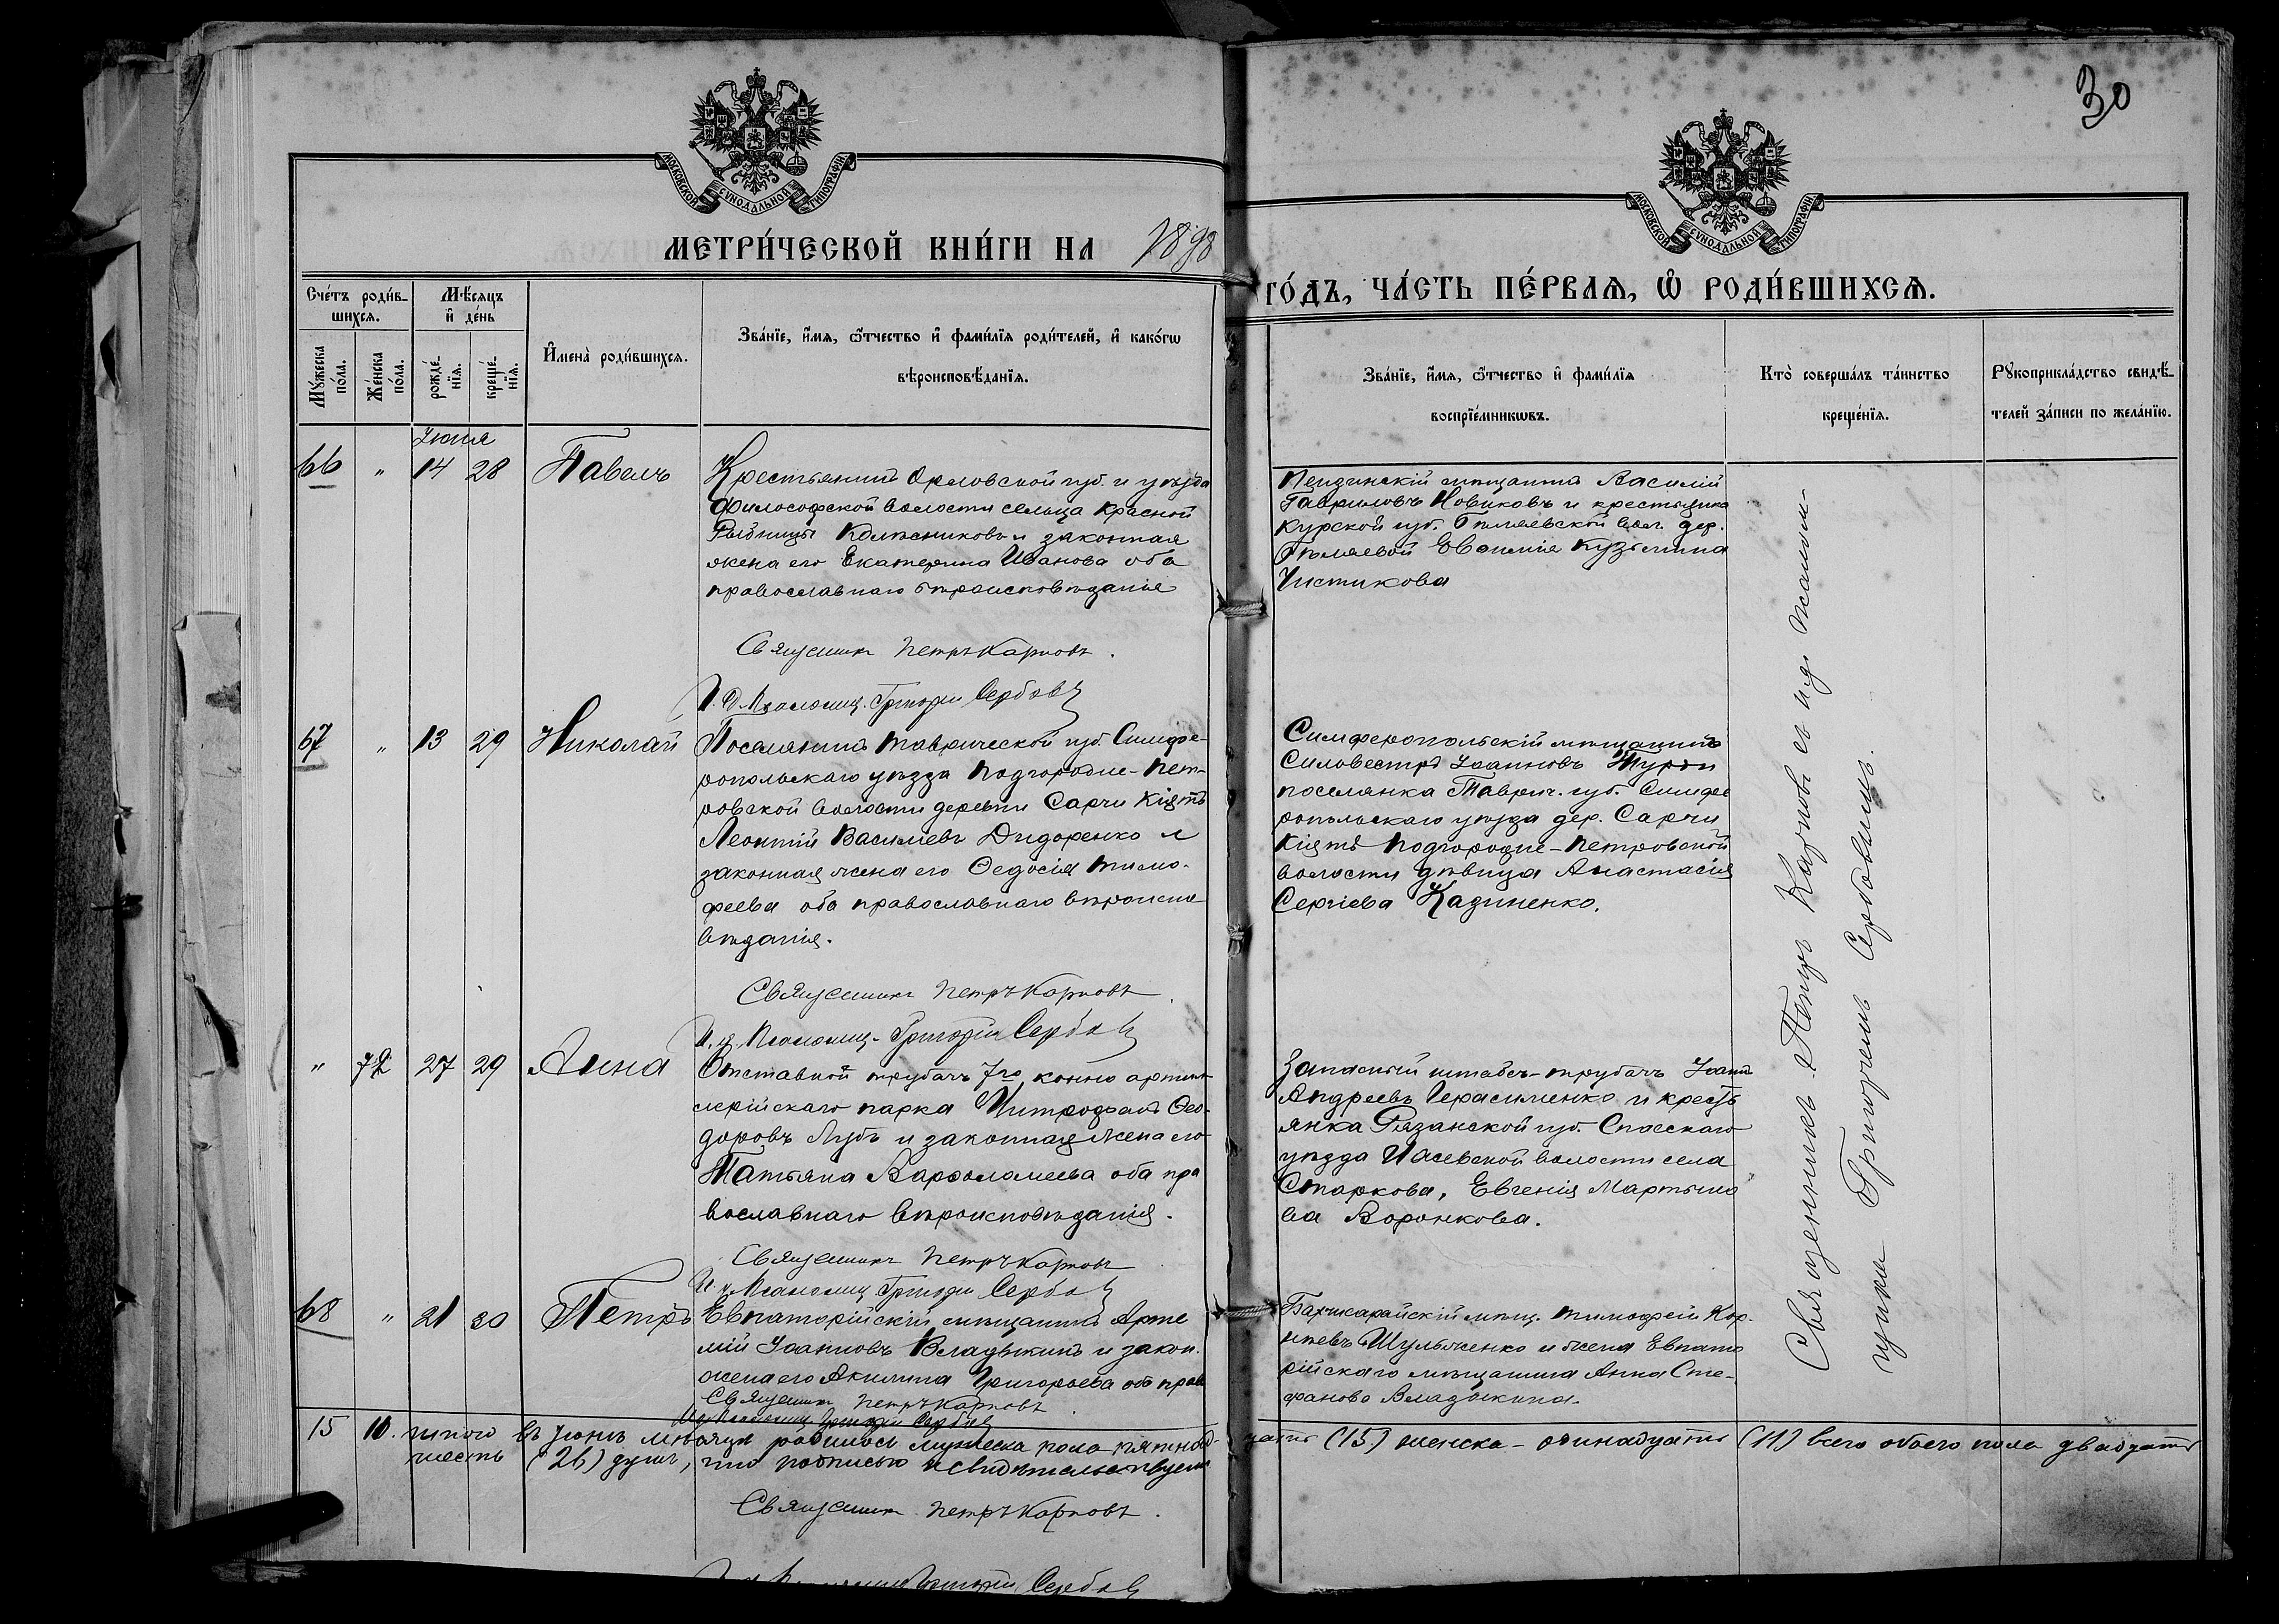 30
МОСКОВСКОЙ СѴНОДАЛЬНОЙ ТИПОГРАФІИ
МОСКОВСКОЙ СѴНОДАЛЬНОЙ ТИПОГРАФІИ
МЕТРИ́ЧЕСКОЙ КНИ́ГИ НА 1898
ГО́ДЪ, ЧА́СТЬ ПЕ́РВАѦ, Ѡ҆ РОДИ́ВШИХСѦ.
Сче́тъ роди́в-
шихсѧ.
Мꙋ́жеска по́ла.
Же́нска по́ла.
Мѣ́сѧцъ
и҆ де́нь
рожде́-нїѧ.
креще́-нїѧ.
И҆мена̀ роди́вшихсѧ.
Зва́нїе, и҆́мѧ, ѻ҆́тчество и҆ фами́лїѧ роди́телей, и҆ како́гѡ
вѣроисповѣ́данїѧ.
Зва́нїе, и҆́мѧ, ѻ҆́тчество и҆ фами́лїѧ
воспрїе́мникѡвъ.
Кто̀ соверша́лъ та́инство
креще́нїѧ.
Рꙋкоприкла́дство свидѣ́-
телей за́писи по жела́нїю.
Іюня
66 " 14 28 Павелъ
Крестьянинъ Орловской губ. и уѣзда
Философской волости сельца Красной
Рыбницы Колесниковъ и законная
жена его Екатерина Иванова оба
православнаго вѣроисповѣданія
Священникъ Петръ Карповъ.
И. д. Псаломщ. Григорій Сербовъ
Василій
Гавриловъ Новиковъ и крестьянка
Курской губ. Бѣляевской вол. дер.
Бѣляевой Евфимія Кузьмина
Чистикова
67 " 13 29 Николай
Поселянинъ Таврической губ. Симфе-
ропольскаго уѣзда Подгородне-Пет-
ровской волости деревни Сарчи Кіятъ
Леонтій Васильевъ Дидоренко и
законная жена его Ѳедосія Тимо-
феева оба православнаго вѣроиспо
вѣданія.
Священникъ Петръ Карповъ
И. д. Псаломщ. Григорій Сербовъ
Симферопольскій мѣщанинъ
Силовестръ Іоанновъ
поселянка Таврич. губ. Симфе
ропольскаго уѣзда дер. Сарчи
Кіятъ Подгородне-Петровской
волости дѣвица Анастасія
Сергіева Казиненко.
" 72 27 29 Анна
Отставной трубачъ 7го конно артил-
лерійскаго парка Митрофанъ Ѳео-
доровъ Лубъ и законная жена его
Татьяна Варфоломеева оба пра
вославнаго вѣроисповѣданія.
Священникъ Петръ Карповъ
И. д. Псаломщ. Григорій Сербовъ
Запасный штабсъ-трубачъ Іоаннъ
Андреевъ Герасименко и кресть
янка Рязанской губ. Спасскаго
уѣзда волости села
Старкова, Евгенія Мартыно
ва Воронкова.
68 " 21 30 Петръ
Евпаторійскій мѣщанинъ Арте
мій Іоанновъ Владыкинъ и закон.
жена его Акилина Григорьева оба прав
Священникъ Петръ Карповъ
И. д. Псаломщ. Григорій Сербовъ
Бахчисарайскій мѣщ. Тимофей Кор-
нѣевъ Шульженко и жена Евпато
рійскаго мѣщанина Анна Сте-
фанова Владыкина.
Священникъ Петръ Карповъ съ и. д. псалом-
щика Григоріемъ Сербовымъ.
15 11. итого въ Іюнѣ мѣсяцѣ родилось мужеска пола пятнад-
цать (15) женска - одинадцать (11) всего обоего пола двадцать
шесть (26) душъ, что подписью и свидѣтельствуемъ
Священникъ Петръ Карповъ.
Григорій Сербовъ